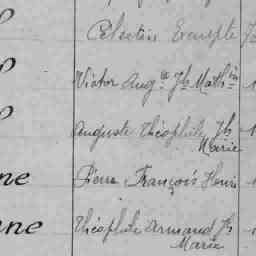 Célestin Exupère J
Victor Aug.te Jh Math.in 1
Auguste Théophile Jh 1
Marie
ne Pierre François Henri 1
nne Théophile Armand Jh
Marie